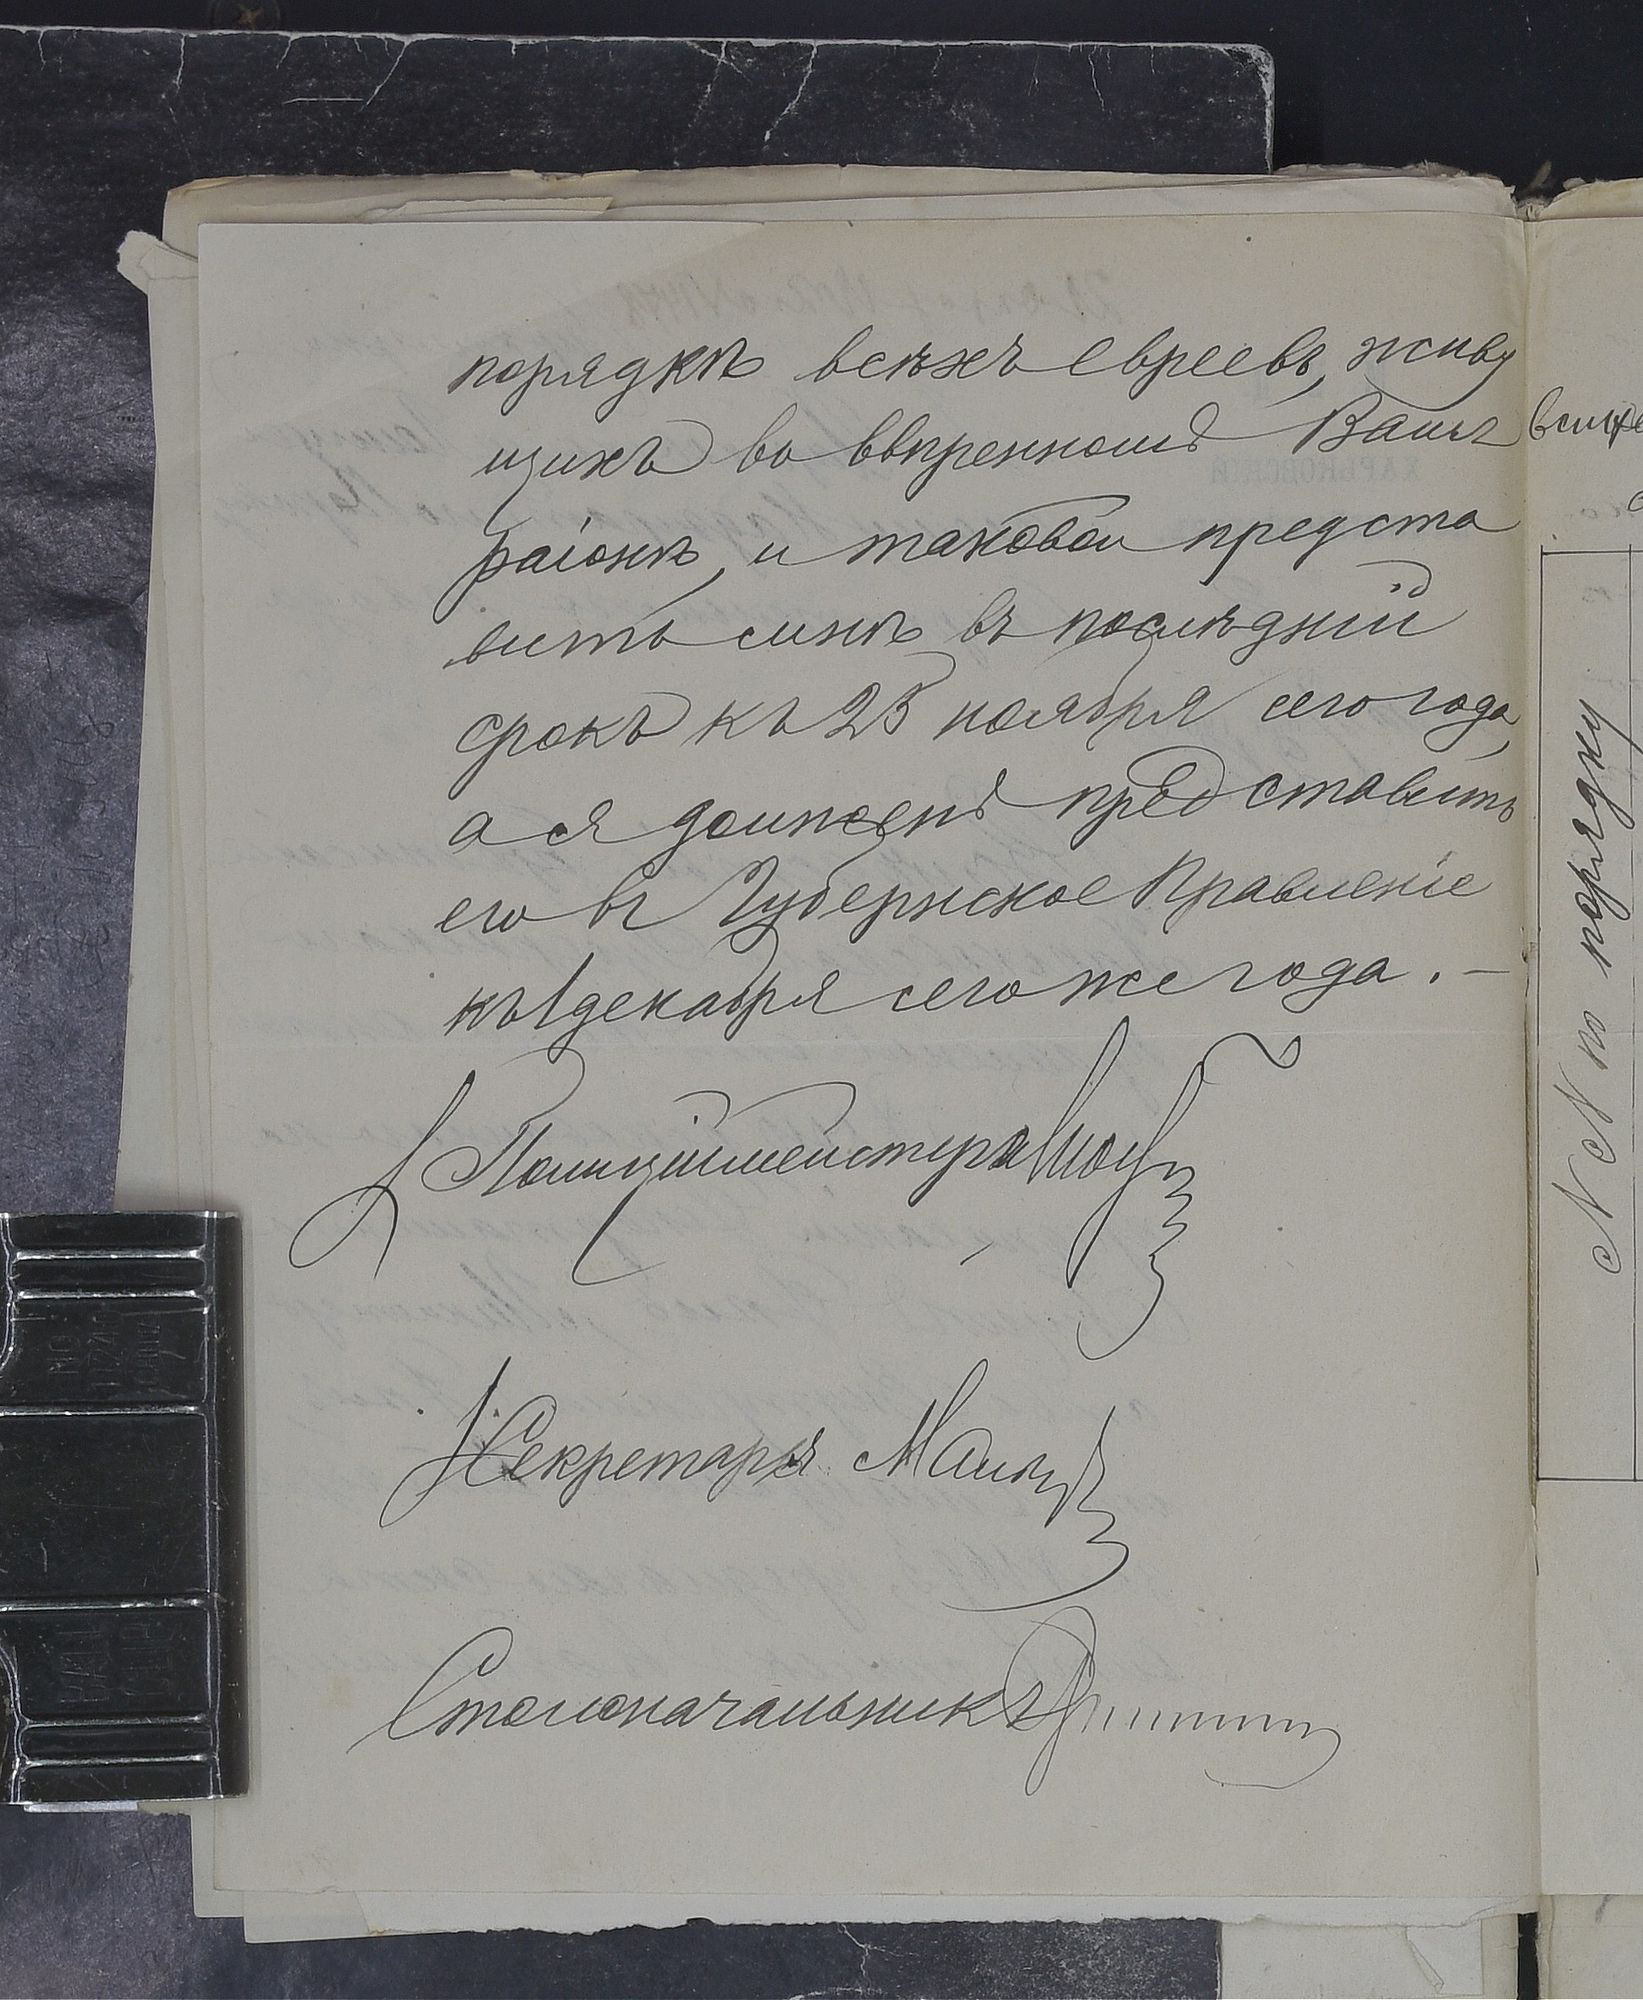 порядкѣ всѣхъ евреевъ, живу
щихъ во ввѣренномъ Вамъ
районѣ, и таковой предста
вить мнѣ въ послѣдній
срокъ къ 25 ноября сего года,
а я долженъ представить
его въ Губернское Правленіе
къ 1 декабря сего же года. —
Полиціймейстеръ
Секретарь
Столоначальникъ
всѣхъ
№№ по порядку
ХАРЬКОВСКІЙ